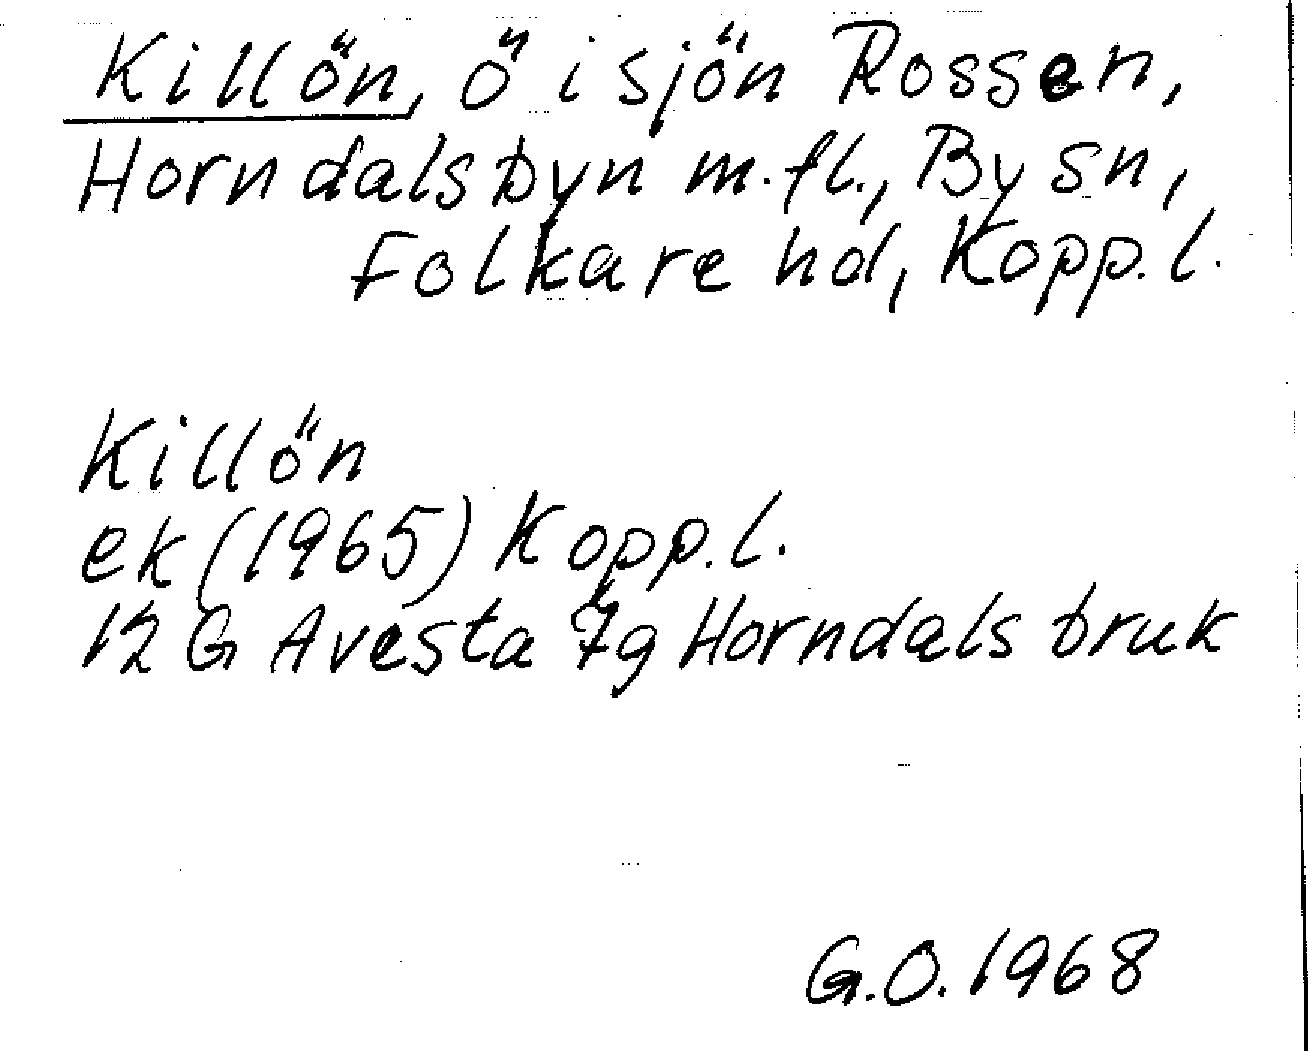 Killön, ö i sjön Rossen,
Horndalsbyn m.fl., By sn,
Folkare hd, Kopp.l.
Killön
ek (1965) Kopp.l.
12 G Avesta 7g Horndals bruk
G.O. 1968